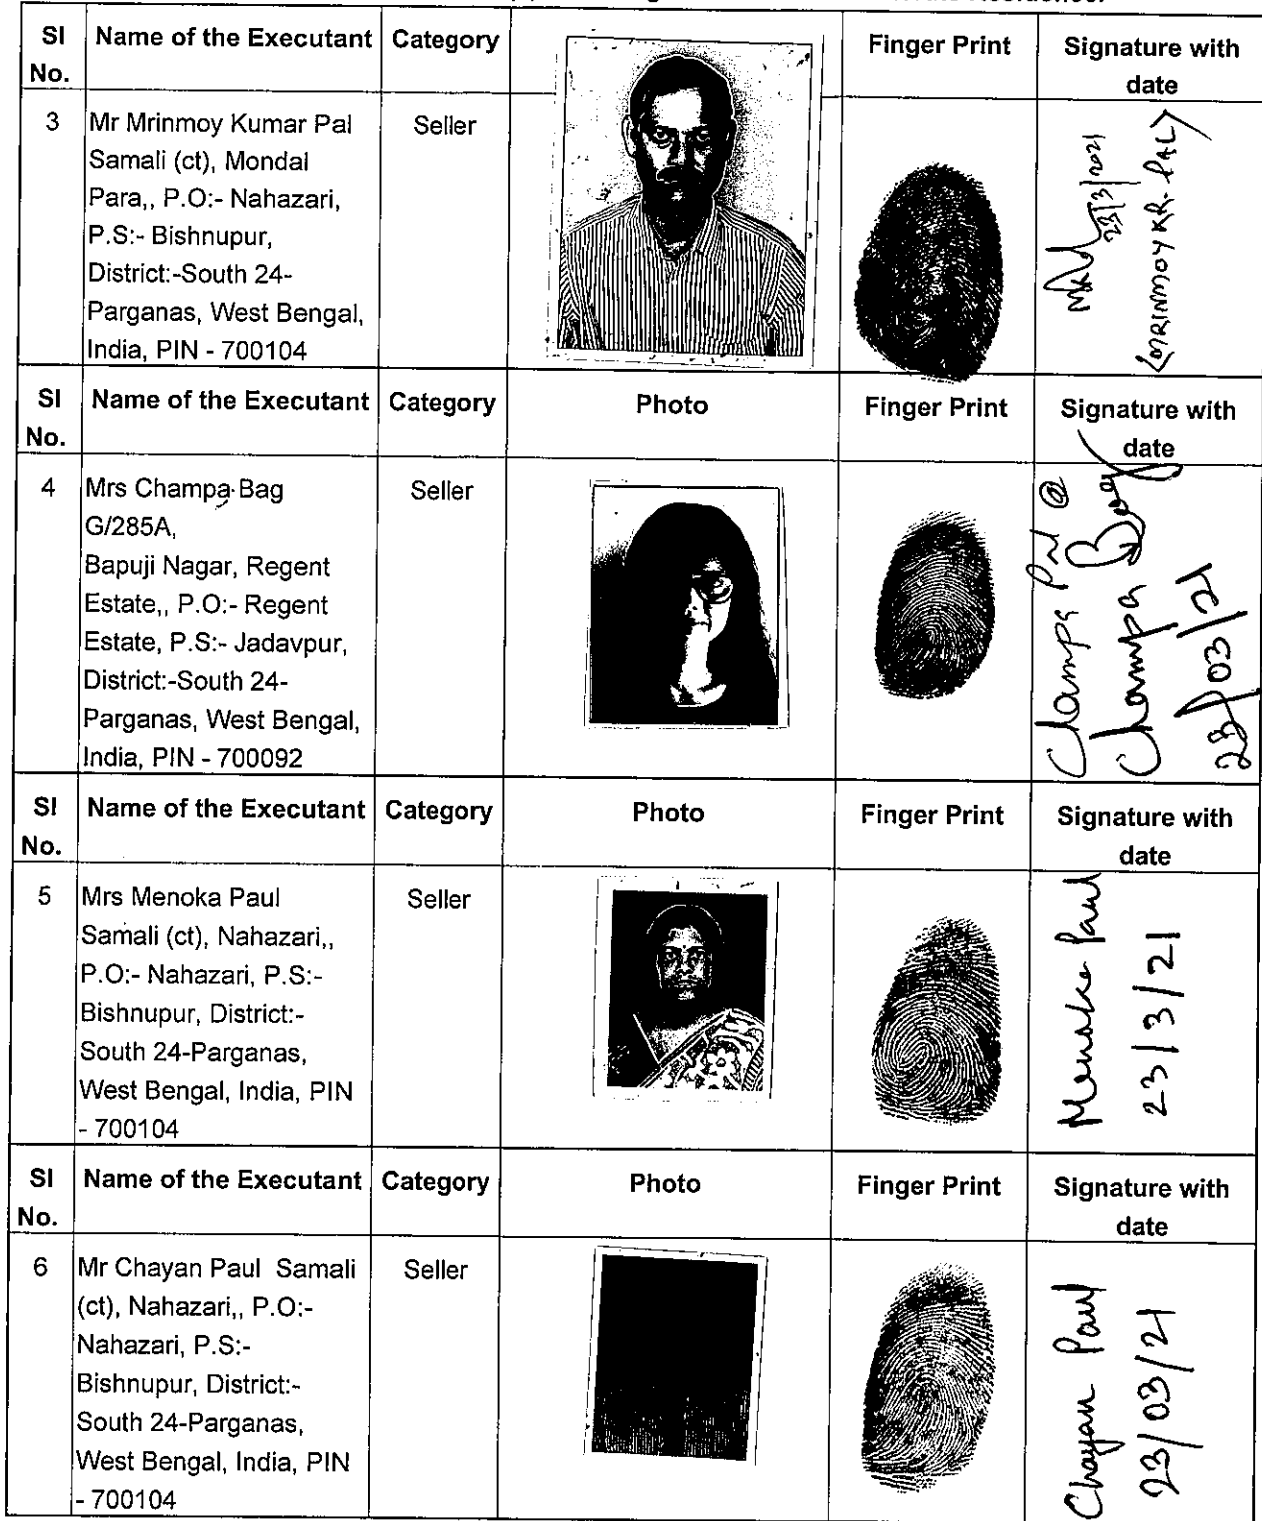 Sl No.
Name of the Executant
Category
Finger Print
Signature with date
3
Mr Mrinmoy Kumar Pal
Samali (ct), Mondal
Para,, P.O:- Nahazari,
P.S:- Bishnupur,
District:-South 24-
Parganas, West Bengal,
India, PIN - 700104
Seller
23/3/2021
(MRINMOY KR. PAL)
Sl No.
Name of the Executant
Category
Photo
Finger Print
Signature with date
4
Mrs Champa Bag
G/285A,
Bapuji Nagar, Regent
Estate,, P.O:- Regent
Estate, P.S:- Jadavpur,
District:-South 24-
Parganas, West Bengal,
India, PIN - 700092
Seller
Champa Pal @
Champa Bag
23/03/21
Sl No.
Name of the Executant
Category
Photo
Finger Print
Signature with date
5
Mrs Menoka Paul
Samali (ct), Nahazari,,
P.O:- Nahazari, P.S:-
Bishnupur, District:-
South 24-Parganas,
West Bengal, India, PIN
- 700104
Seller
Menoka Paul
23/3/21
Sl No.
Name of the Executant
Category
Photo
Finger Print
Signature with date
6
Mr Chayan Paul Samali
(ct), Nahazari,, P.O:-
Nahazari, P.S:-
Bishnupur, District:-
South 24-Parganas,
West Bengal, India, PIN
- 700104
Seller
Chayan Paul
23/03/21